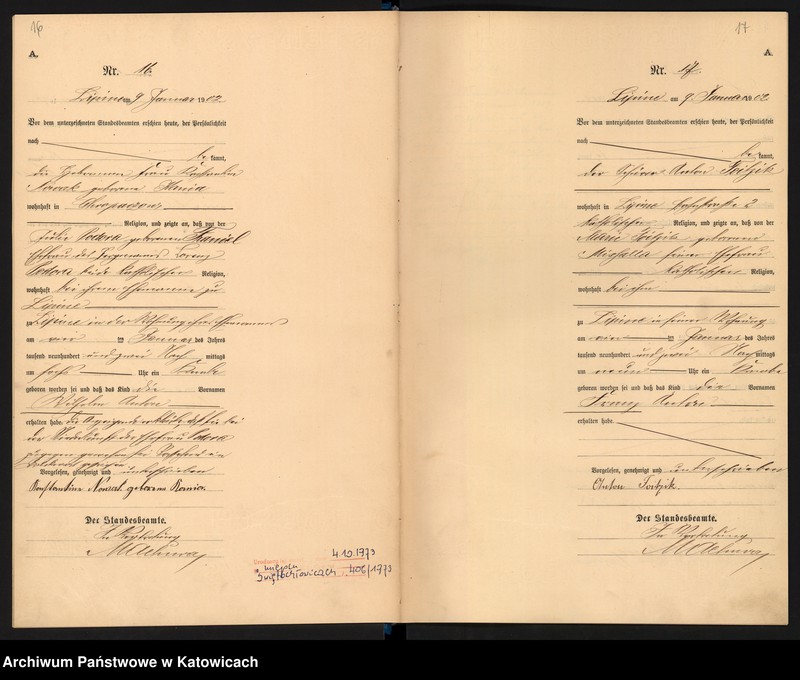 16
A.
Nr. 16.
Lipine am 9 Januar 1902.
Vor dem unterzeichneten Standesbeamten erschien heute, der Persönlichkeit
nach
be kannt,
die Hebamme Frau Konstantine
Nowak geborene Kania
wohnhaft in Chropaczow
Religion, und zeigte an, daß von der
Julie Sodora geborenen
Ehefrau des Lorenz
Sodora beide katholischer Religion,
wohnhaft bei ihrem Ehemanne zu
Lipine
zu Lipine in der Wohnung ihres Ehemannes
am vier ten Januar des Jahres
tausend neunhundert und zwei Nach mittags
um sechs Uhr ein Knabe
geboren worden sei und daß das Kind die Vornamen
Wilhelm Anton
erhalten habe. die Anzeigende erklärte, daß sie bei
der Niederkunft der Ehefrau Sodora
zugegen gewesen sei
Vorgelesen, genehmigt und unterschrieben
Konstantine Nowak geborene Kania.
Der Standesbeamte.
In Vertretung
4.10.1973
406/1973
Świętochłowicach
17
A.
Nr. 17.
Lipine am 9 Januar 1902
Vor dem unterzeichneten Standesbeamten erschien heute, der Persönlichkeit
nach
be kannt,
der Anton Foitzik
wohnhaft in Lipine 2
katholischer Religion, und zeigte an, daß von der
Marie Foitzik geborenen
Michalla seiner Ehefrau
katholischer Religion,
wohnhaft bei ihm
zu Lipine in seiner Wohnung
am vier ten Januar des Jahres
tausend neunhundert und zwei Nach mittags
um neun Uhr ein Knabe
geboren worden sei und daß das Kind die Vornamen
Franz
erhalten habe.
Vorgelesen, genehmigt und unterschrieben
Anton Foitzik.
Der Standesbeamte.
In Vertretung
Archiwum Państwowe w Katowicach